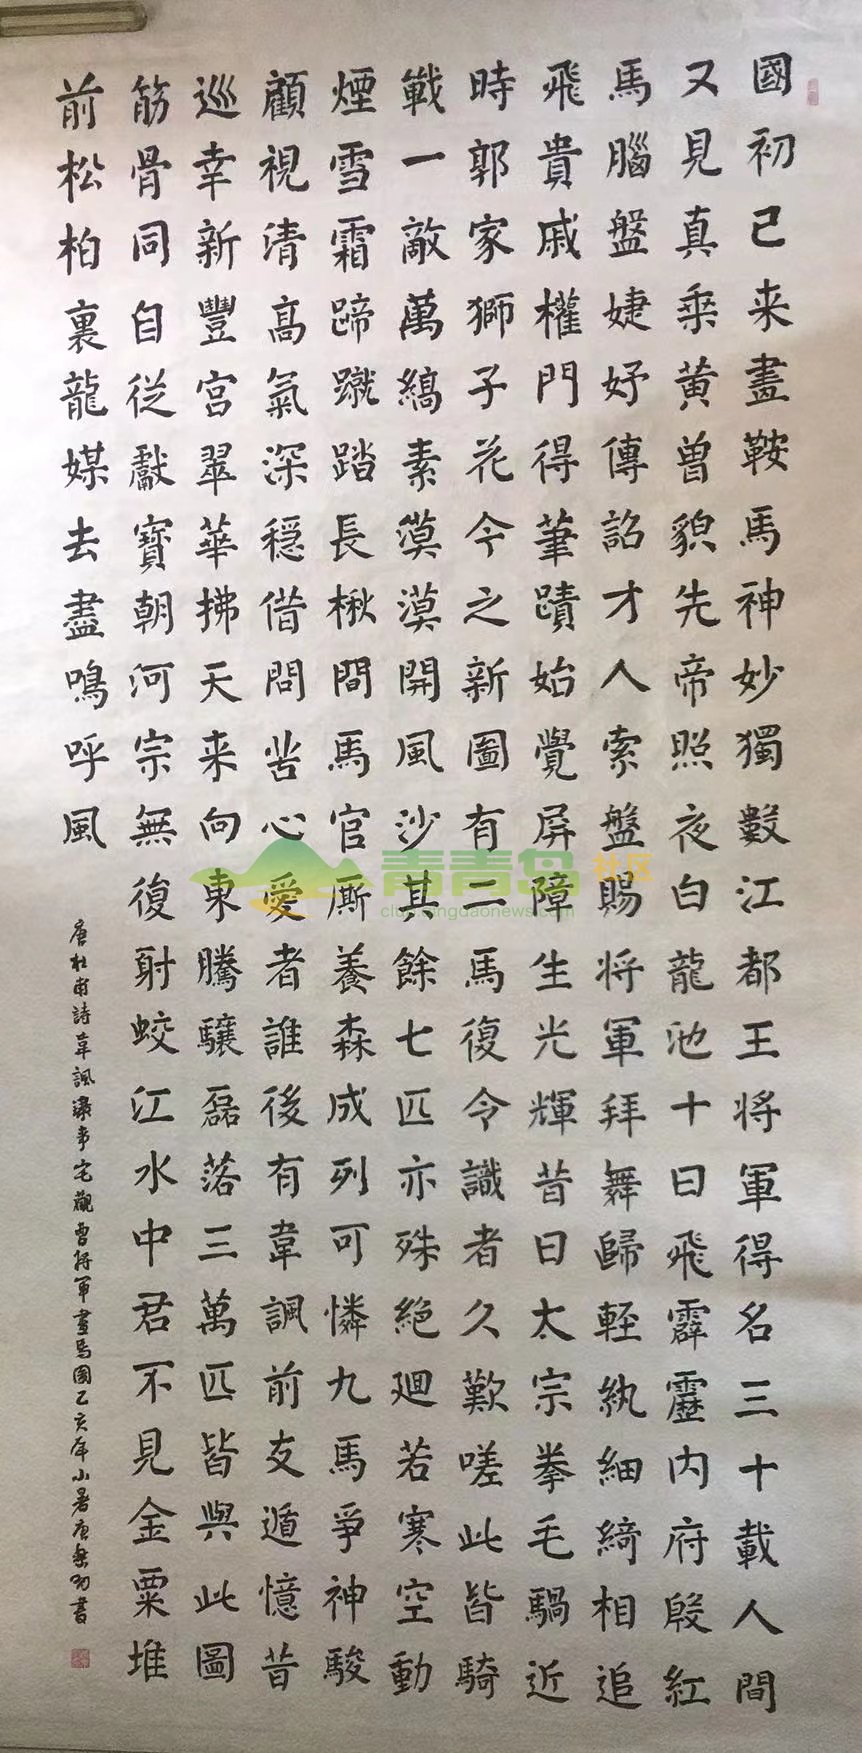 國初已来畫鞍馬神妙獨數江都王将軍得名三十載人間
又見真乗黄曽貌先帝照夜白龍池十日飛霹靂内府殷紅
馬腦盤婕妤傳詔才人索盤賜将軍拜舞歸輕紈細綺相追
飛貴戚權門得筆蹟始覺屏障生光輝昔日太宗拳毛騧近
時郭家獅子花今之新圖有二馬復令識者久歎嗟此皆騎
戰一敵萬縞素漠漠開風沙其餘七匹亦殊絶迴若寒空動
煙雪霜蹄蹴踏長楸間馬官厮養森成列可憐九馬爭神駿
顧視清高氣深穩借問苦心愛者誰後有韋諷前支遁憶昔
巡幸新豐宮翠華拂天来向東騰驤磊落三萬匹皆與此圖
筋骨同自從獻寶朝河宗無復射蛟江水中君不見金粟堆
前松柏裏龍媒去盡鳴呼風
唐杜甫詩韋諷録事宅觀曹将軍畫馬圖乙亥年小暑唐功書
青青岛社区
club.qingdaonews.com